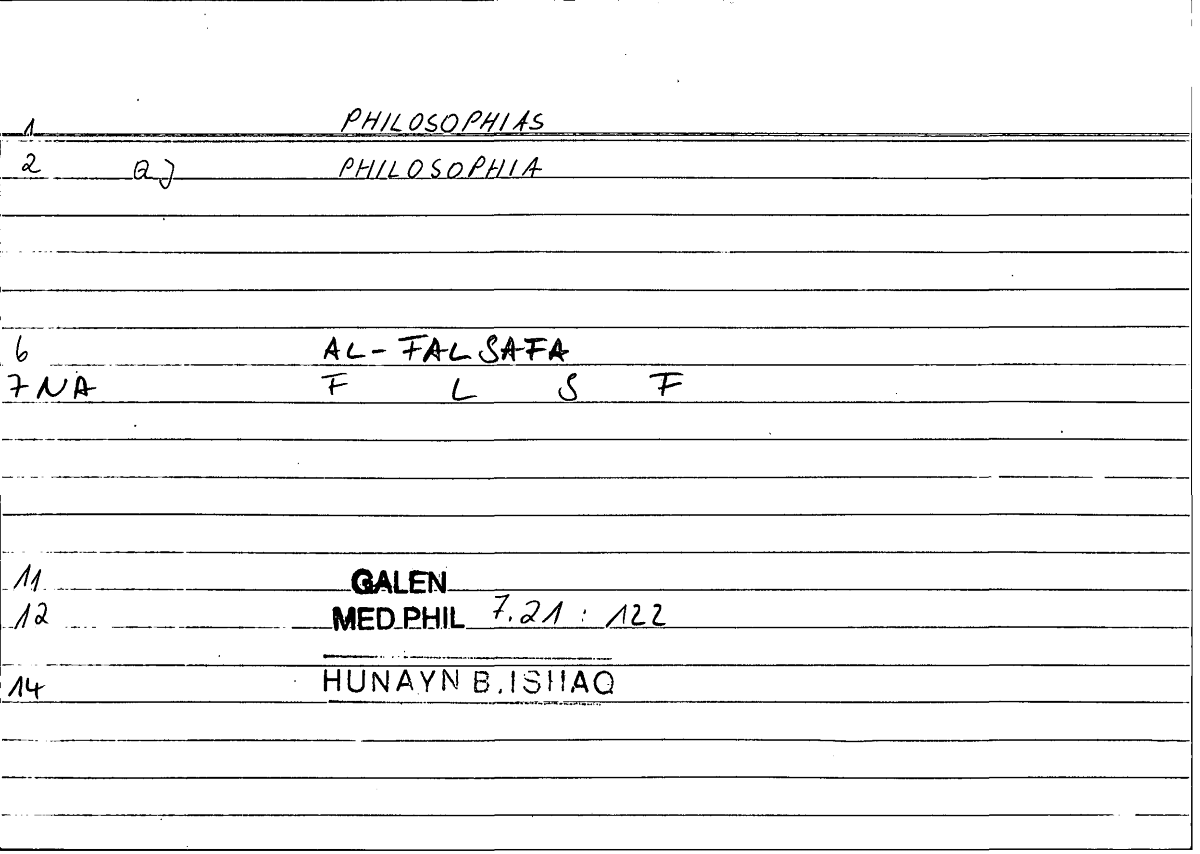 1 PHILOSOPHIAS
2 a) PHILOSOPHIA
6 AL-FALSAFA
7 NA F L S F
11 GALEN
12 MED PHIL 7.21 : 122
14 HUNAYN B.ISHAQ